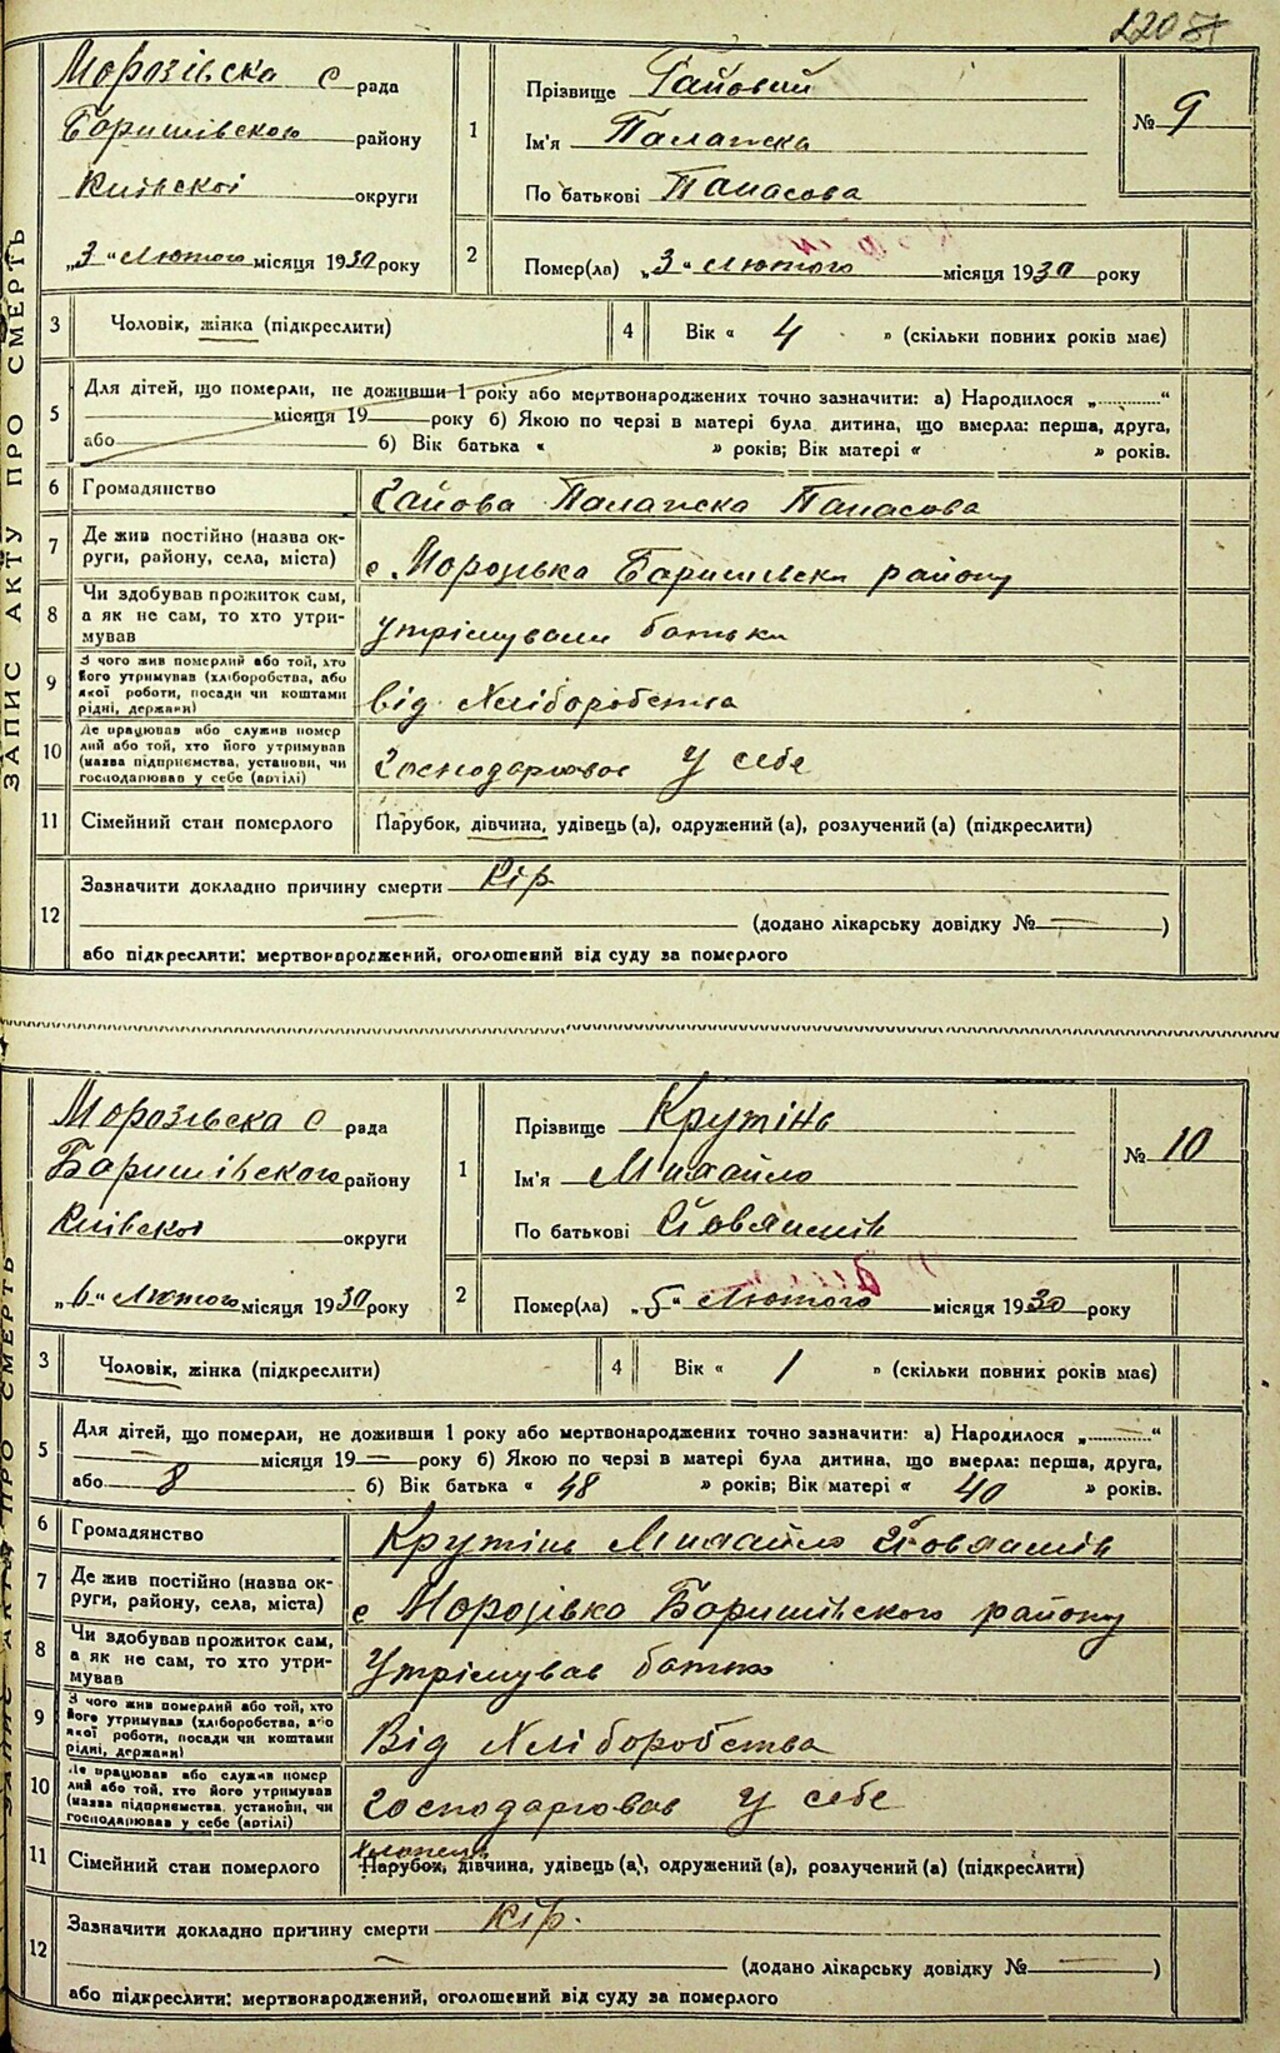 220
Морозівска с рада
Баришівского району
Київскої округи
„3“ Лютого місяця 1930 року
ЗАПИС АКТУ ПРО СМЕРТЬ
1
Прізвище Гайовий
Ім'я Палажка
По батькові Панасова
№ 9
2
Помер(ла) „3“ Лютого місяця 1930 року
3 Чоловік, жінка (підкреслити)
4 Вік « 4 » (скільки повних років має)
5 Для дітей, що померли, не доживши 1 року або мертвонароджених точно зазначити: а) Народилося „............“
місяця 19 року б) Якою по черзі в матері була дитина, що вмерла: перша, друга,
або б) Вік батька « » років; Вік матері « » років.
6 Громадянство Гайова Палажка Панасова
7 Де жив постійно (назва ок-
руги, району, села, міста) с. Морозівка Баришівськ району
8 Чи здобував прожиток сам,
а як не сам, то хто утри-
мував утрімували батьки
9 З чого жив померлий або той, хто
його утримував (хліборобства, або
якої роботи, посади чи коштами
рідні, держави) від Хліборобства
10 Де працював або служив помер
лий або той, хто його утримував
(назва підприємства, установи, чи
господарював у себе (артілі) Господарював у себе
11 Сімейний стан померлого Парубок, дівчина, удівець (а), одружений (а), розлучений (а) (підкреслити)
12 Зазначити докладно причину смерти Кір
(додано лікарську довідку № — )
або підкреслити: мертвонароджений, оголошений від суду за померлого
Морозівска с рада
Баришівского району
Київскої округи
„6“ Лютого місяця 1930 року
ЗАПИС АКТУ ПРО СМЕРТЬ
1
Прізвище Крутінь
Ім'я Михайло
По батькові
№ 10
2
Помер(ла) „5“ Лютого місяця 1930 року
3 Чоловік, жінка (підкреслити)
4 Вік « 1 » (скільки повних років має)
5 Для дітей, що померли, не доживши 1 року або мертвонароджених точно зазначити: а) Народилося „............“
— місяця 19— року б) Якою по черзі в матері була дитина, що вмерла: перша, друга,
або 8 б) Вік батька « 48 » років; Вік матері « 40 » років.
6 Громадянство Крутінь Михайло
7 Де жив постійно (назва ок-
руги, району, села, міста) с Морозівка Баришівского району
8 Чи здобував прожиток сам,
а як не сам, то хто утри-
мував Утрімував батько
9 З чого жив померлий або той, хто
його утримував (хліборобства, або
якої роботи, посади чи коштами
рідні, держави) Від Хліборобства
10 Де працював або служив помер
лий або той, хто його утримував
(назва підприємства, установи, чи
господарював у себе (артілі) Господарював у себе
хлопець
11 Сімейний стан померлого Парубок, дівчина, удівець (а), одружений (а), розлучений (а) (підкреслити)
12 Зазначити докладно причину смерти Кір.
(додано лікарську довідку № — )
або підкреслити: мертвонароджений, оголошений від суду за померлого